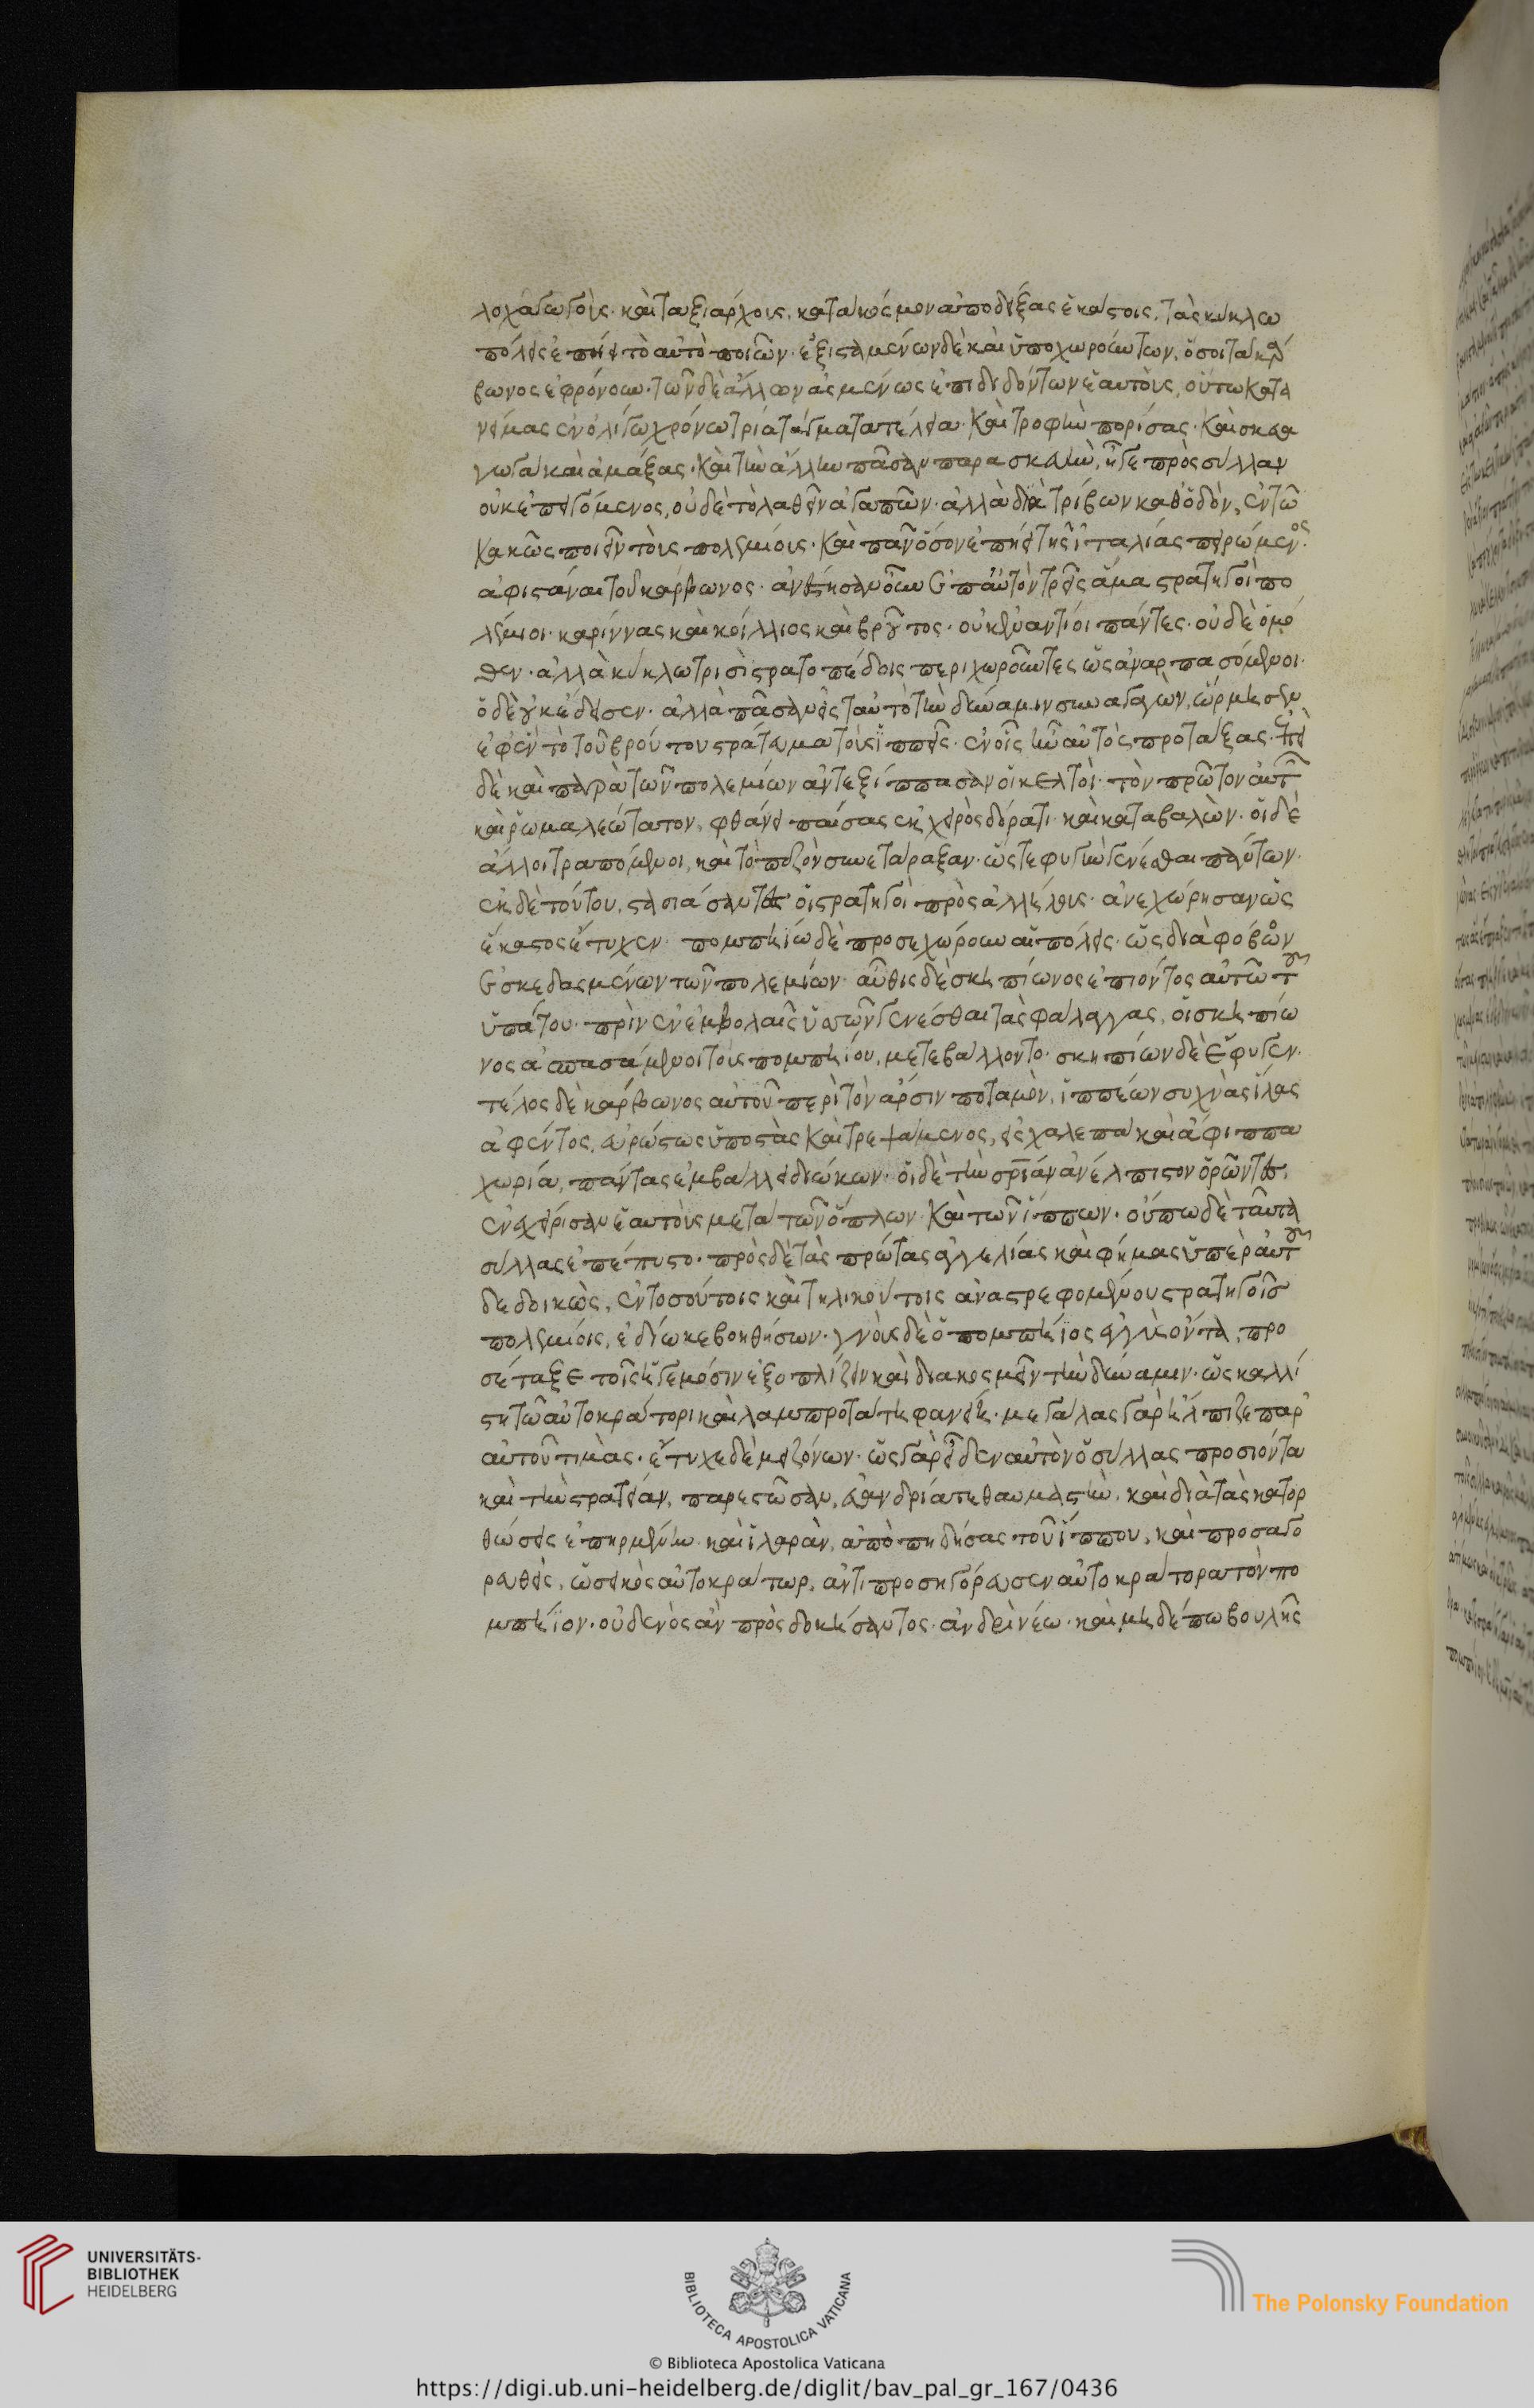 λοχαγωγοὺς· καὶ ταξιάρχοις, κατὰ κόσμον ἀποδείξας ἑκάστοις, τὰς κύκλω
πόλεις ἐπήει τὸ αὐτὸ ποιῶν· ἐξισταμένων δὲ καὶ ὑποχωρούντων, ὅσοι τὰ κάρ
βωνος ἐφρόνουν· τῶν δὲ ἄλλων ἀσμένως ἐπιδιδόντων ἑαυτοὺς, οὕτω κατα
νείμας ἐν ὀλίγω χρόνω τρία τάγματα τέλεια· καὶ τροφὴν πορίσας· καὶ σκευα
γωγὰ καὶ ἁμάξας· καὶ τὴν ἄλλην πᾶσαν παρασκευὴν, ἦγε πρὸς σύλλαν
οὐκ ἐπειγόμενος, οὐδὲ τὸ λαθεῖν ἀγαπῶν· ἀλλὰ διατρίβων καθ' ὁδὸν, ἐν τῶ
κακῶς ποιεῖν τοὺς πολεμίους· καὶ πᾶν ὅσον ἐπήει τῆς ἰταλίας πειρώμενος
ἀφιστάναι τοῦ κάρβωνος· ἀντέστησαν οὖν ἐπ' αὐτὸν τρεῖς ἅμα στρατηγοὶ πο
λέμιοι· καρίννας καὶ κοίλλιος καὶ βροῦτος· οὐκ ἐναντίοι πάντες· οὐδὲ ὁμό
θεν· ἀλλὰ κύκλω τρισὶ στρατοπέδοις περιχωροῦντες ὡς ἀναρπασόμενοι·
ὁ δὲ οὐκ ἔδεισεν· ἀλλὰ πᾶσαν εἰς ταὐτὸ τὴν δύναμιν συναγαγὼν, ὥρμησεν
ἐφ' ἓν τὸ τοῦ βρούτου στράτευμα τοὺς ἱππεῖς· ἐν οἷς ἦν αὐτὸς προτάξας· ἐπεὶ
δὲ καὶ παρὰ τῶν πολεμίων ἀντεξίππασαν οἱ κελτοὶ· τὸν πρῶτον αὐτῶν
καὶ ῥωμαλεώτατον, φθάνει παίσας ἐκ χειρὸς δόρατι· καὶ καταβαλὼν· οἱ δὲ
ἄλλοι τραπόμενοι, καὶ τὸ πεζὸν συνετάραξαν· ὥστε φυγὴν γενέσθαι πάντων·
ἐκ δὲ τούτου, στασιάσαντες οἱ στρατηγοὶ πρὸς ἀλλήλους· ἀνεχώρησαν ὡς
ἕκαστος ἔτυχεν· πομπηίω δὲ προσεχώρουν αἱ πόλεις· ὡς διὰ φόβον
ἐσκεδασμένων τῶν πολεμίων· αὖθις δὲ σκηπίωνος ἐπιόντος αὐτῶ τοῦ
ὑπάτου· πρὶν ἐν ἐμβολαῖς ὑσσῶν γενέσθαι τὰς φάλαγγας, οἱ σκηπίω
νος ἀσπασάμενοι τοὺς πομπηίου, μετεβάλλοντο· σκηπίων δὲ ἔφυγεν·
τέλος δὲ κάρβωνος αὐτοῦ περὶ τὸν ἄρσιν ποταμὸν, ἱππέων συχνὰς ἴλας
ἀφέντος, εὐρώστως ὑποστὰς καὶ τρεψάμενος, εἰς χαλεπὰ καὶ ἄφιππα
χωρία, πάντας ἐμβάλλει διώκων· οἱ δὲ τὴν σωτηρίαν ἀνέλπιστον ὁρῶντες,
ἐνεχείρισαν ἑαυτοὺς μετὰ τῶν ὅπλων· καὶ τῶν ἵππων· οὔπω δὲ ταῦτα
σύλλας ἐπέπυστο· πρὸς δὲ τὰς πρώτας ἀγγελίας καὶ φήμας ὑπὲρ αὐτοῦ
δεδοικὼς, ἐν τοσούτοις καὶ τηλικούτοις ἀναστρεφομένου στρατηγοῖς
πολεμίοις, ἐδίωκε βοηθήσων· γνοὺς δὲ ὁ πομπήιος ἐγγὺς ὄντα, προ
σέταξε τοῖς ἡγεμόσιν ἐξοπλίζειν καὶ διακοσμεῖν τὴν δύναμιν· ὡς καλλί
στη τῶ αὐτοκράτορι καὶ λαμπροτάτη φανείη· μεγάλας γὰρ ἤλπιζε παρ'
αὐτοῦ τιμὰς· ἔτυχε δὲ μειζόνων· ὡς γὰρ εἶδεν αὐτὸν ὁ σύλλας προσιόντα
καὶ τὴν στρατιάν, παρεστῶσαν, εὐανδρία τε θαυμαστὴν, καὶ διὰ τὰς κατορ
θώσεις ἐπηρμένην καὶ ἱλαρὰν, ἀποπηδήσας τοῦ ἵππου, καὶ προσαγο
ρευθεὶς, ὡς εἰκὸς αὐτοκράτωρ, ἀντιπροσηγόρευσεν αὐτοκράτορα τὸν πο
μπήιον· οὐδενὸς ἂν προσδοκήσαντος· ἀνδρὶ νέω· καὶ μηδέπω βουλῆς
UNIVERSITÄTS-
BIBLIOTHEK
HEIDELBERG
BIBLIOTECA APOSTOLICA VATICANA
The Polonsky Foundation
© Biblioteca Apostolica Vaticana
https://digi.ub.uni-heidelberg.de/diglit/bav_pal_gr_167/0436